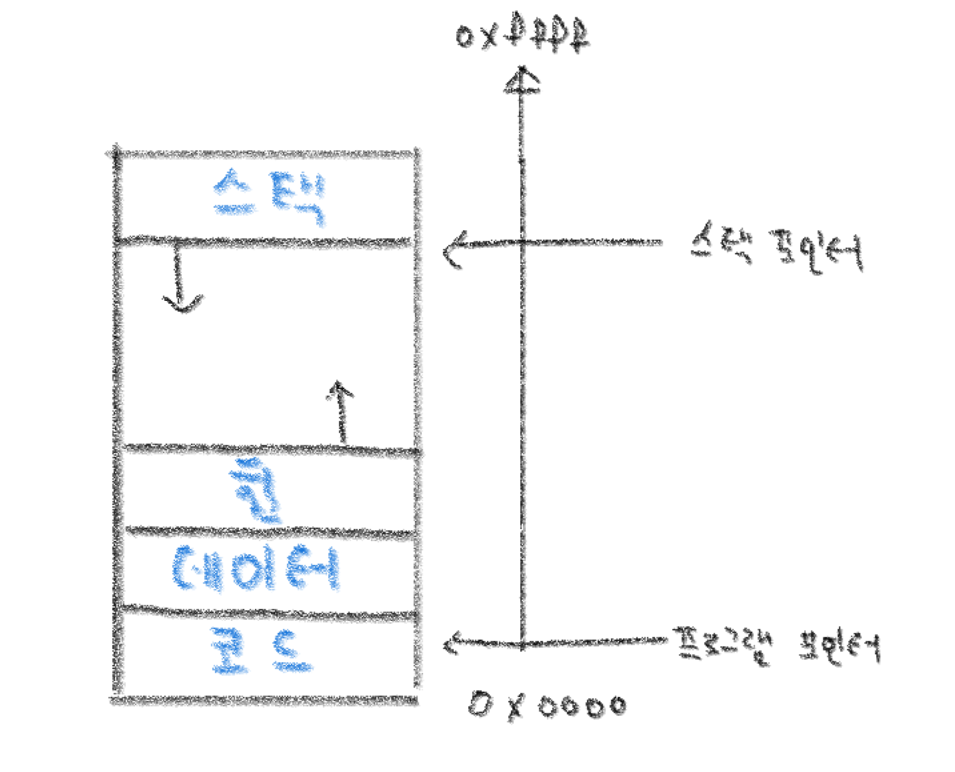 0xFFFF
스택
스택 포인터
힙
데이터
코드
프로그램 포인터
0x0000